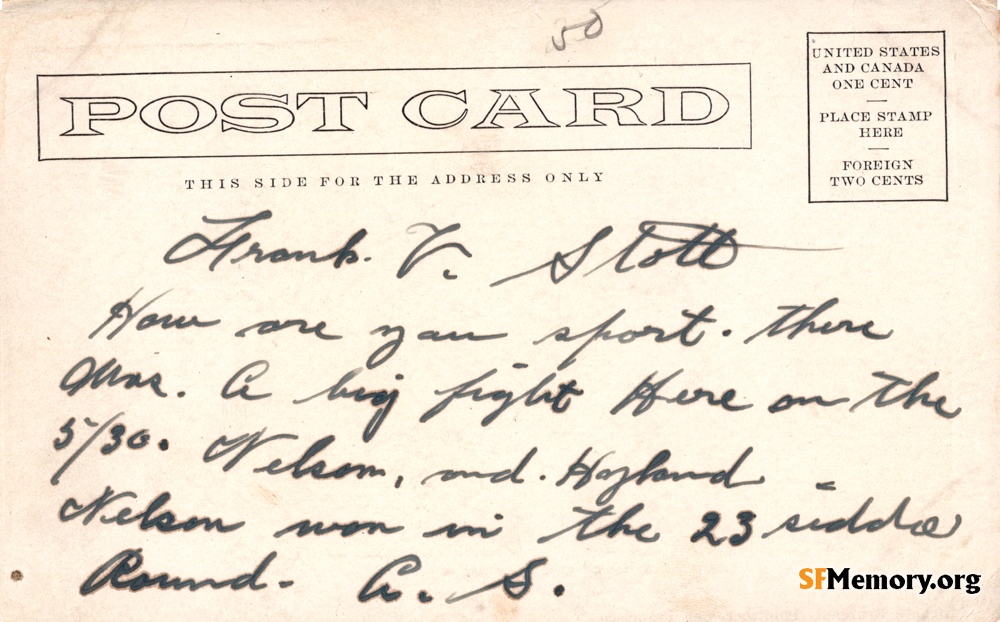 50
POST CARD
THIS SIDE FOR THE ADDRESS ONLY
UNITED STATES
AND CANADA
ONE CENT
PLACE STAMP
HERE
FOREIGN
TWO CENTS
Frank. V. Stott
How are you sport. there
Was. A big fight Here on the
5/30. Nelson, and. Hyland -
Nelson won in the 23
Round. A. S.
SFMemory.org